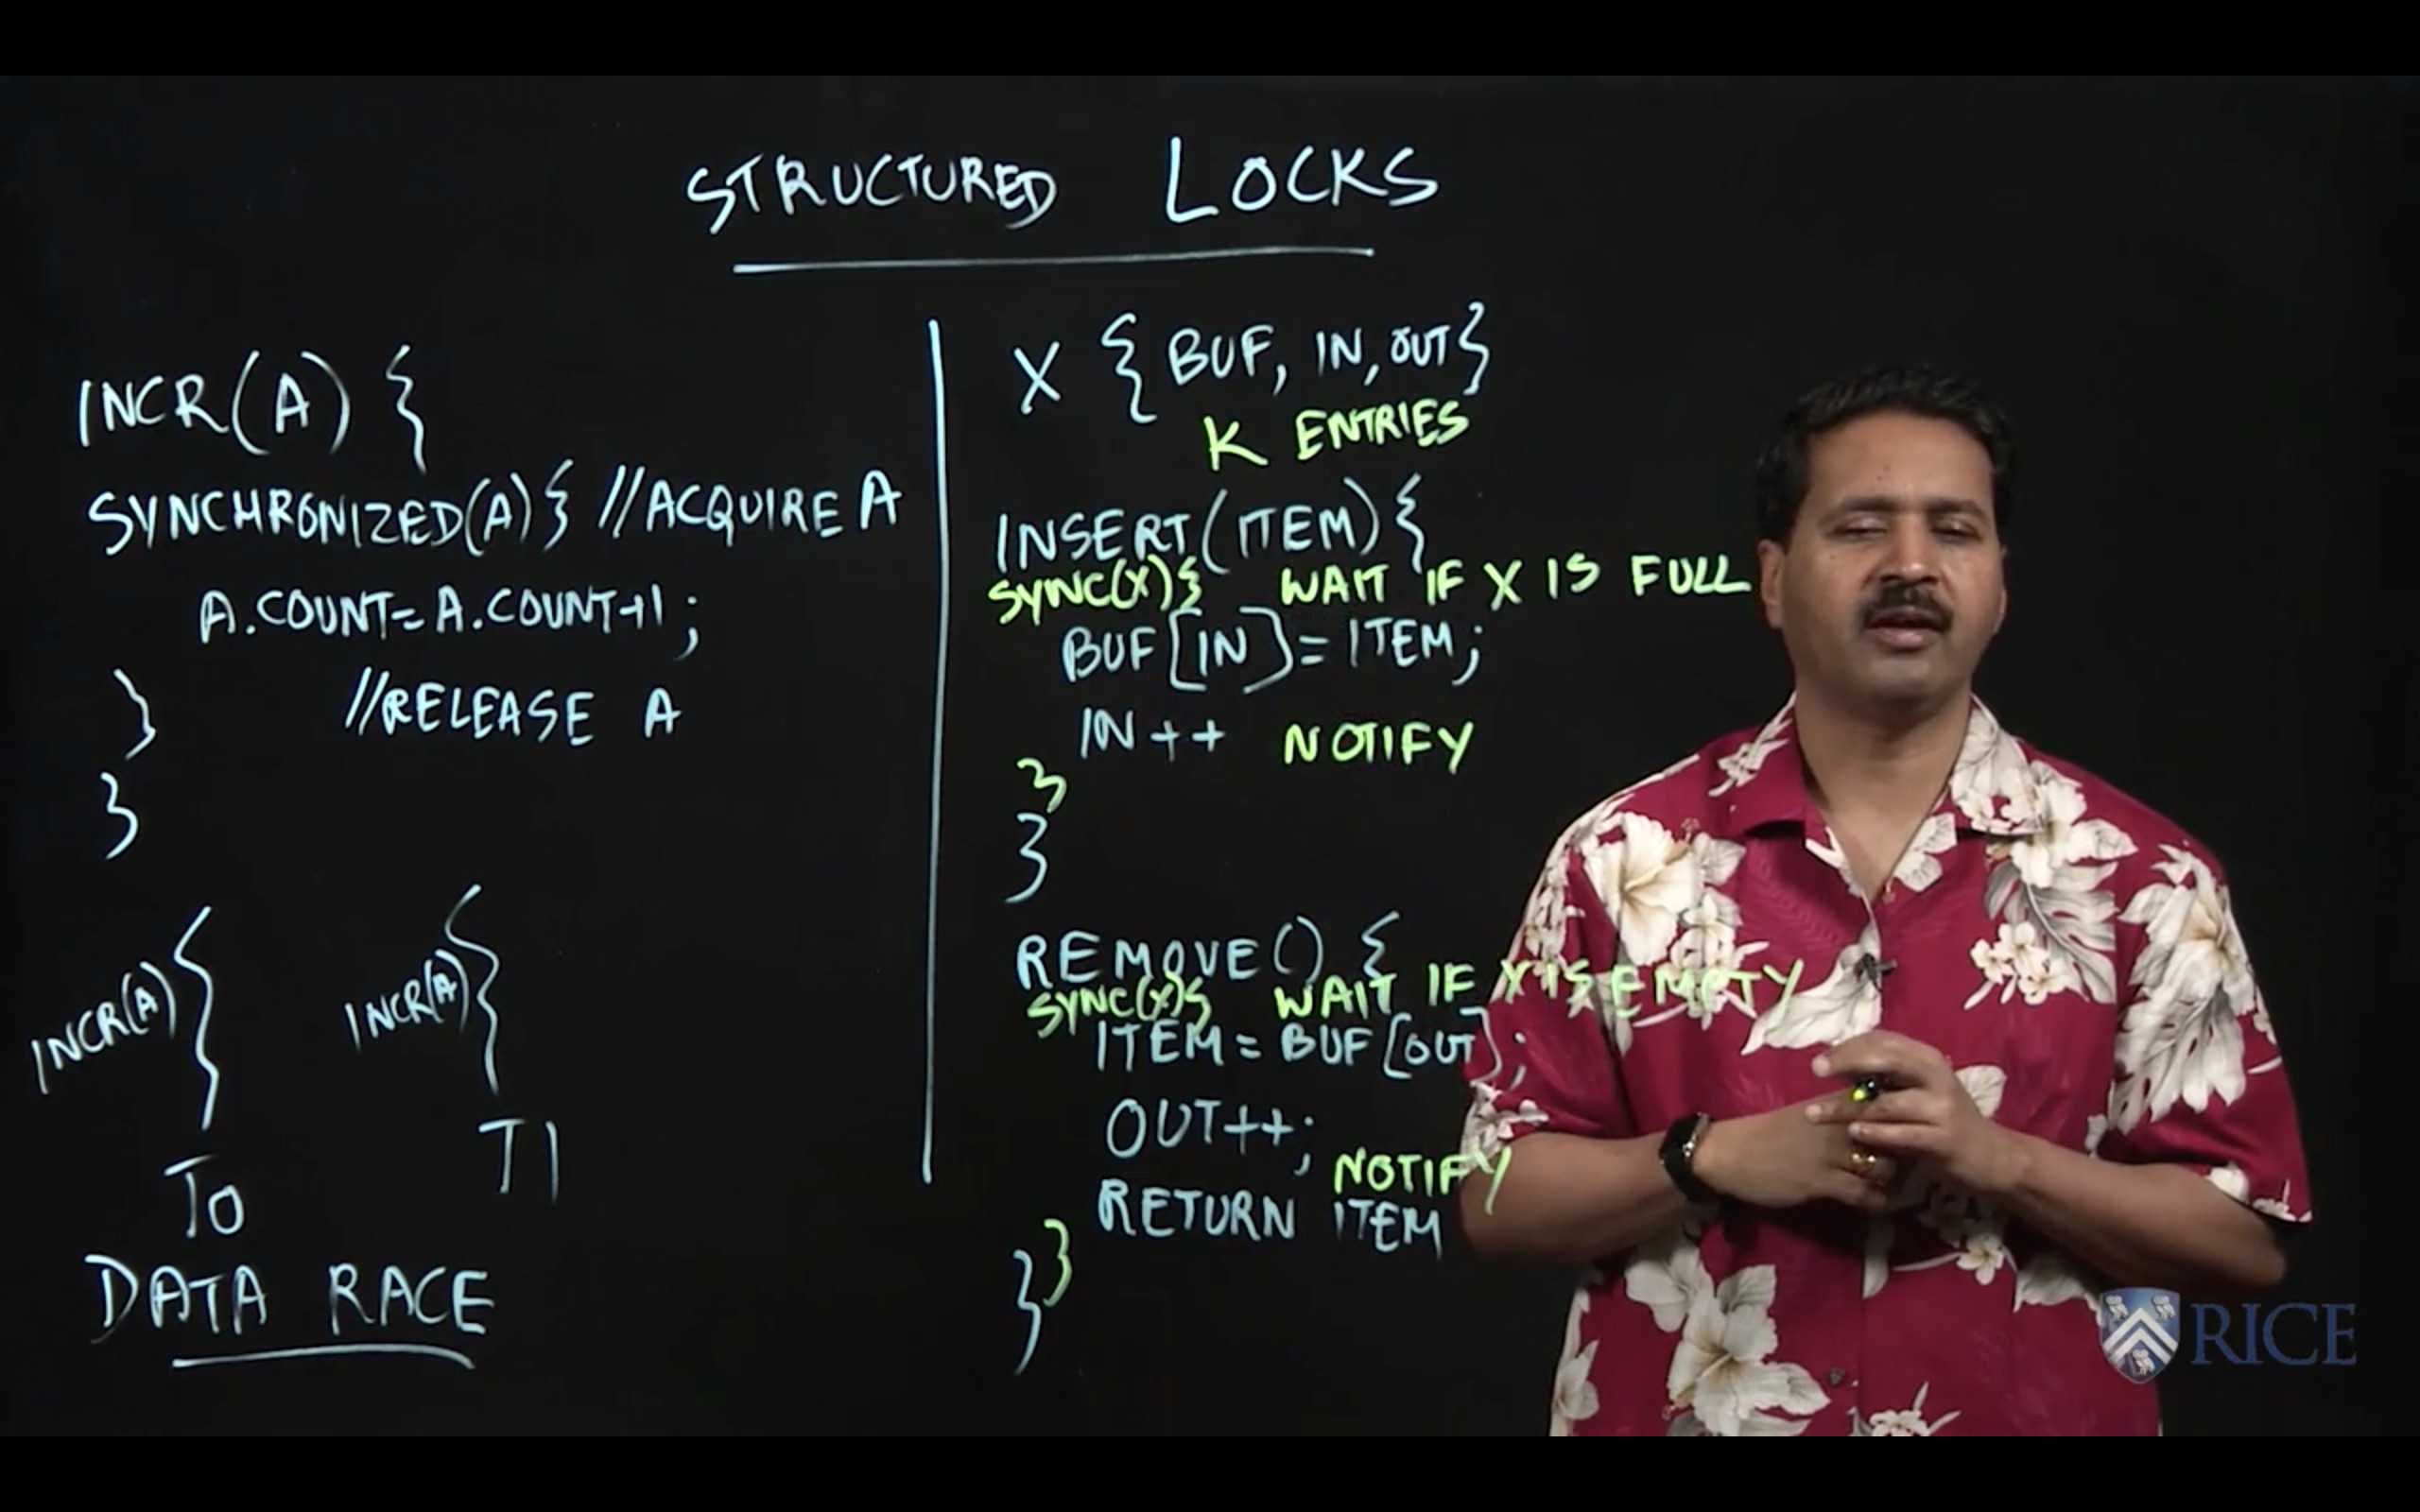 STRUCTURED LOCKS
INCR(A) {
SYNCHRONIZED(A){ //ACQUIRE A
A.COUNT=A.COUNT+1;
} //RELEASE A
}
INCR(A) {
T0
INCR(A) {
T1
DATA RACE
X { BUF, IN, OUT}
K ENTRIES
INSERT(ITEM){
SYNC(X){ WAIT IF X IS FULL
BUF[IN]=ITEM;
IN++ NOTIFY
}
}
REMOVE() {
SYNC(X){ WAIT IF X IS EMPTY
ITEM=BUF[OUT];
OUT++;
NOTIFY
RETURN ITEM
}}
RICE